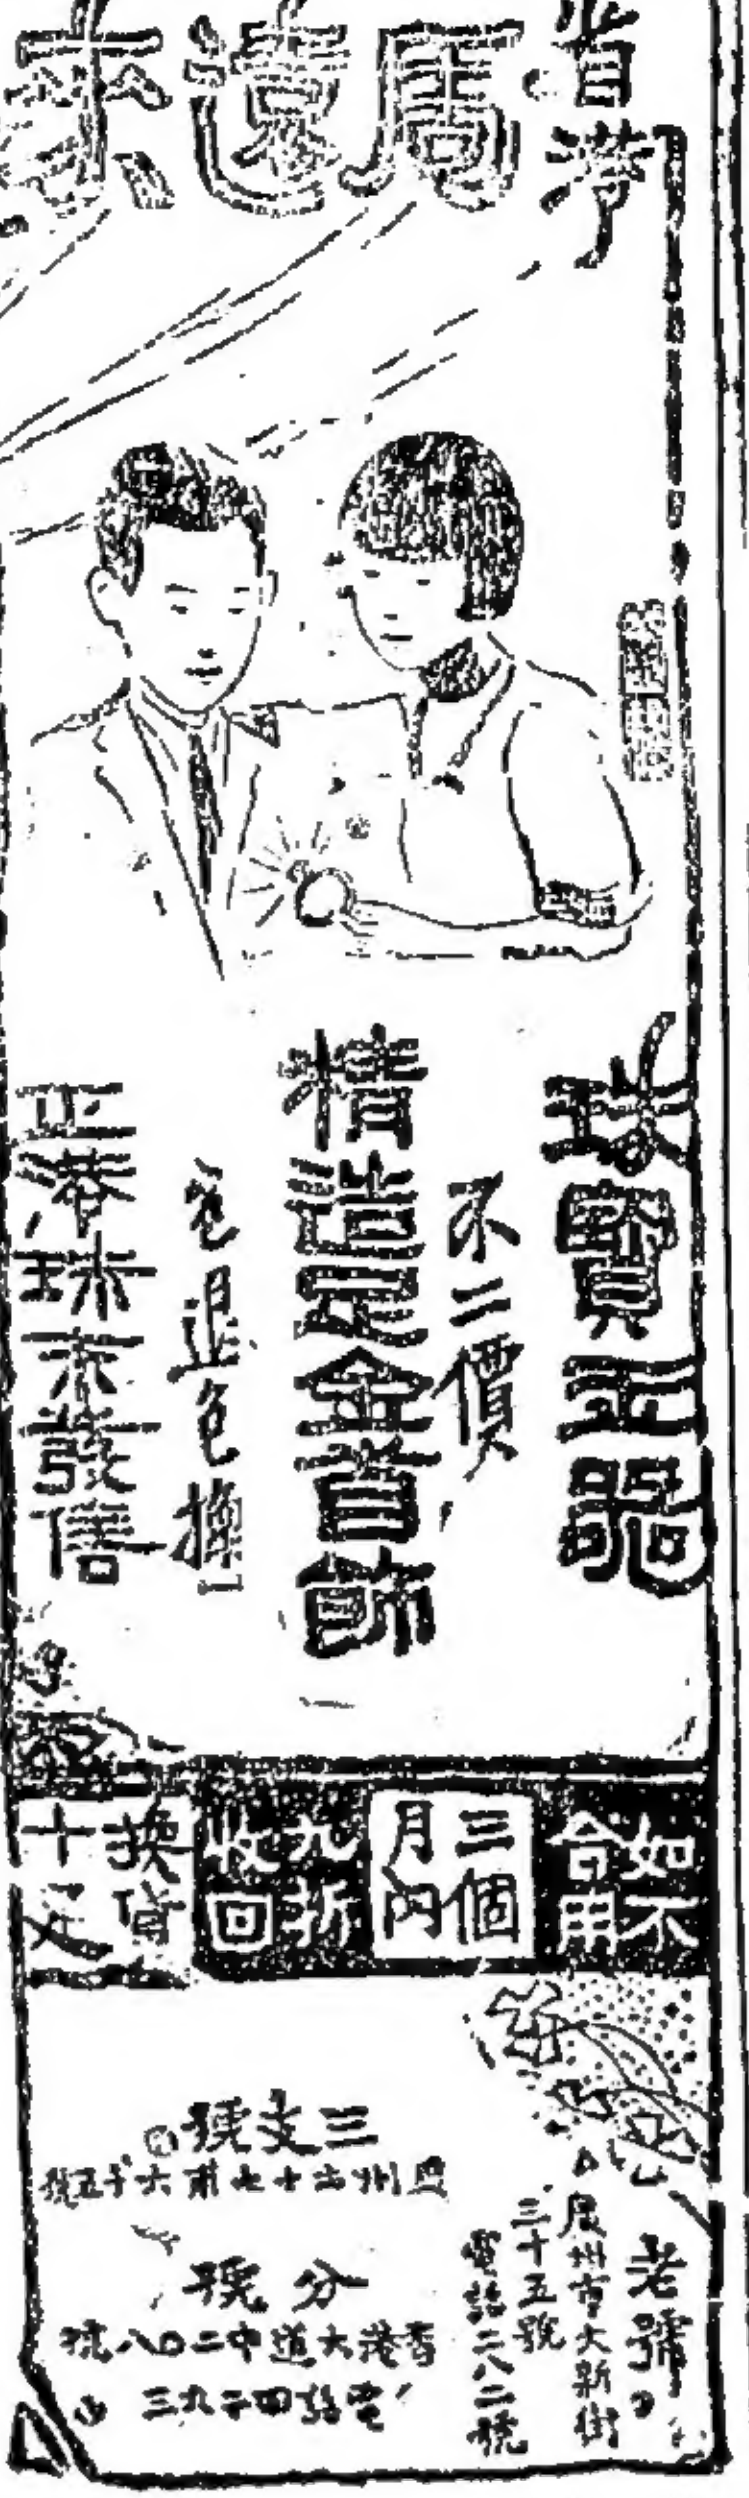 省港
周遠來
珠寶玉器
不二價
精造足金首飾
包退包換
正港珠末發售
如不
合用
三個
月內
九折
收回
換貨
十足
老號
廣州市大新街
三十五號
電話二八二號
三支號
廣州市十七甫六十五號
分號
香港大道中二〇八號
電話四二九三